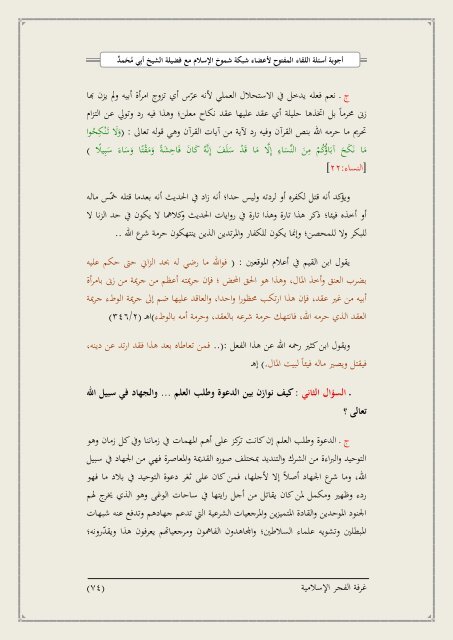 أجوبة أسئلة اللقاء المفتوح لأعضاء شبكة شموخ الإسلام مع فضيلة الشيخ أبي مُحَمدٍ
ج . نعم فعله يدخل في الاستحلال العملي لأنه عرّس أي تزوج امرأة أبيه ولم يزن بها
زنى محرماً بل اتخذها حليلة أي عقد عليها عقد نكاح معلن؛ وهذا فيه رد وتولي عن التزام
تحريم ما حرمه الله بنص القرآن وفيه رد لآية من آيات القرآن وهي قوله تعالى : (وَلَا تَنْكِحُوا
مَا نَكَحَ آبَاؤُكُمْ مِنَ النِّسَاءِ إِلَّا مَا قَدْ سَلَفَ إِنَّهُ كَانَ فَاحِشَةً وَمَقْتًا وَسَاءَ سَبِيلًا )
[النساء:٢٢]
ويؤكد أنه قتل لكفره أو لردته وليس حدا؛ أنه زاد في الحديث أنه بعدما قتله خمّس ماله
أو أخذه فيئا؛ ذكر هذا تارة وهذا تارة في روايات الحديث وكلاهما لا يكون في حد الزنا لا
للبكر ولا للمحصن؛ وإنما يكون للكفار والمرتدين الذين ينتهكون حرمة شرع الله ..
يقول ابن القيم في أعلام الموقعين : ( فوالله ما رضي له بحد الزاني حتى حكم عليه
بضرب العنق وأخذ المال، وهذا هو الحق المحض ؛ فإن جريمته أعظم من جريمة من زنى بامرأة
أبيه من غير عقد، فإن هذا ارتكب محظورا واحدا، والعاقد عليها ضم إلى جريمة الوطء جريمة
العقد الذي حرمه الله، فانتهك حرمة شرعه بالعقد، وحرمة أمه بالوطء)اهـ (٣٤٦/٢)
ويقول ابن كثير رحمه الله عن هذا الفعل :(.. فمن تعاطاه بعد هذا فقد ارتد عن دينه،
فيقتل ويصير ماله فيئاً لبيت المال.) إهـ
. السؤال الثاني : كيف نوازن بين الدعوة وطلب العلم ... والجهاد في سبيل الله
تعالى ؟
ج . الدعوة وطلب العلم إن كانت تركز على أهم المهمات في زماننا وفي كل زمان وهو
التوحيد والبراءة من الشرك والتنديد بمختلف صوره القديمة والمعاصرة فهي من الجهاد في سبيل
الله، وما شرع الجهاد أصلاً إلا لأجلها، فمن كان على ثغر دعوة التوحيد في بلاد ما فهو
ردء وظهير ومكمل لمن كان يقاتل من أجل رايتها في ساحات الوغى وهو الذي يخرج لهم
الجنود الموحدين والقادة المتميزين والمرجعيات الشرعية التي تدعم جهادهم وتدفع عنه شبهات
المبطلين وتشويه علماء السلاطين؛ والمجاهدون الفاهمون ومرجعياتهم يعرفون هذا ويقدّرونه؛
غرفة الفجر الإسلامية
(٧٤)